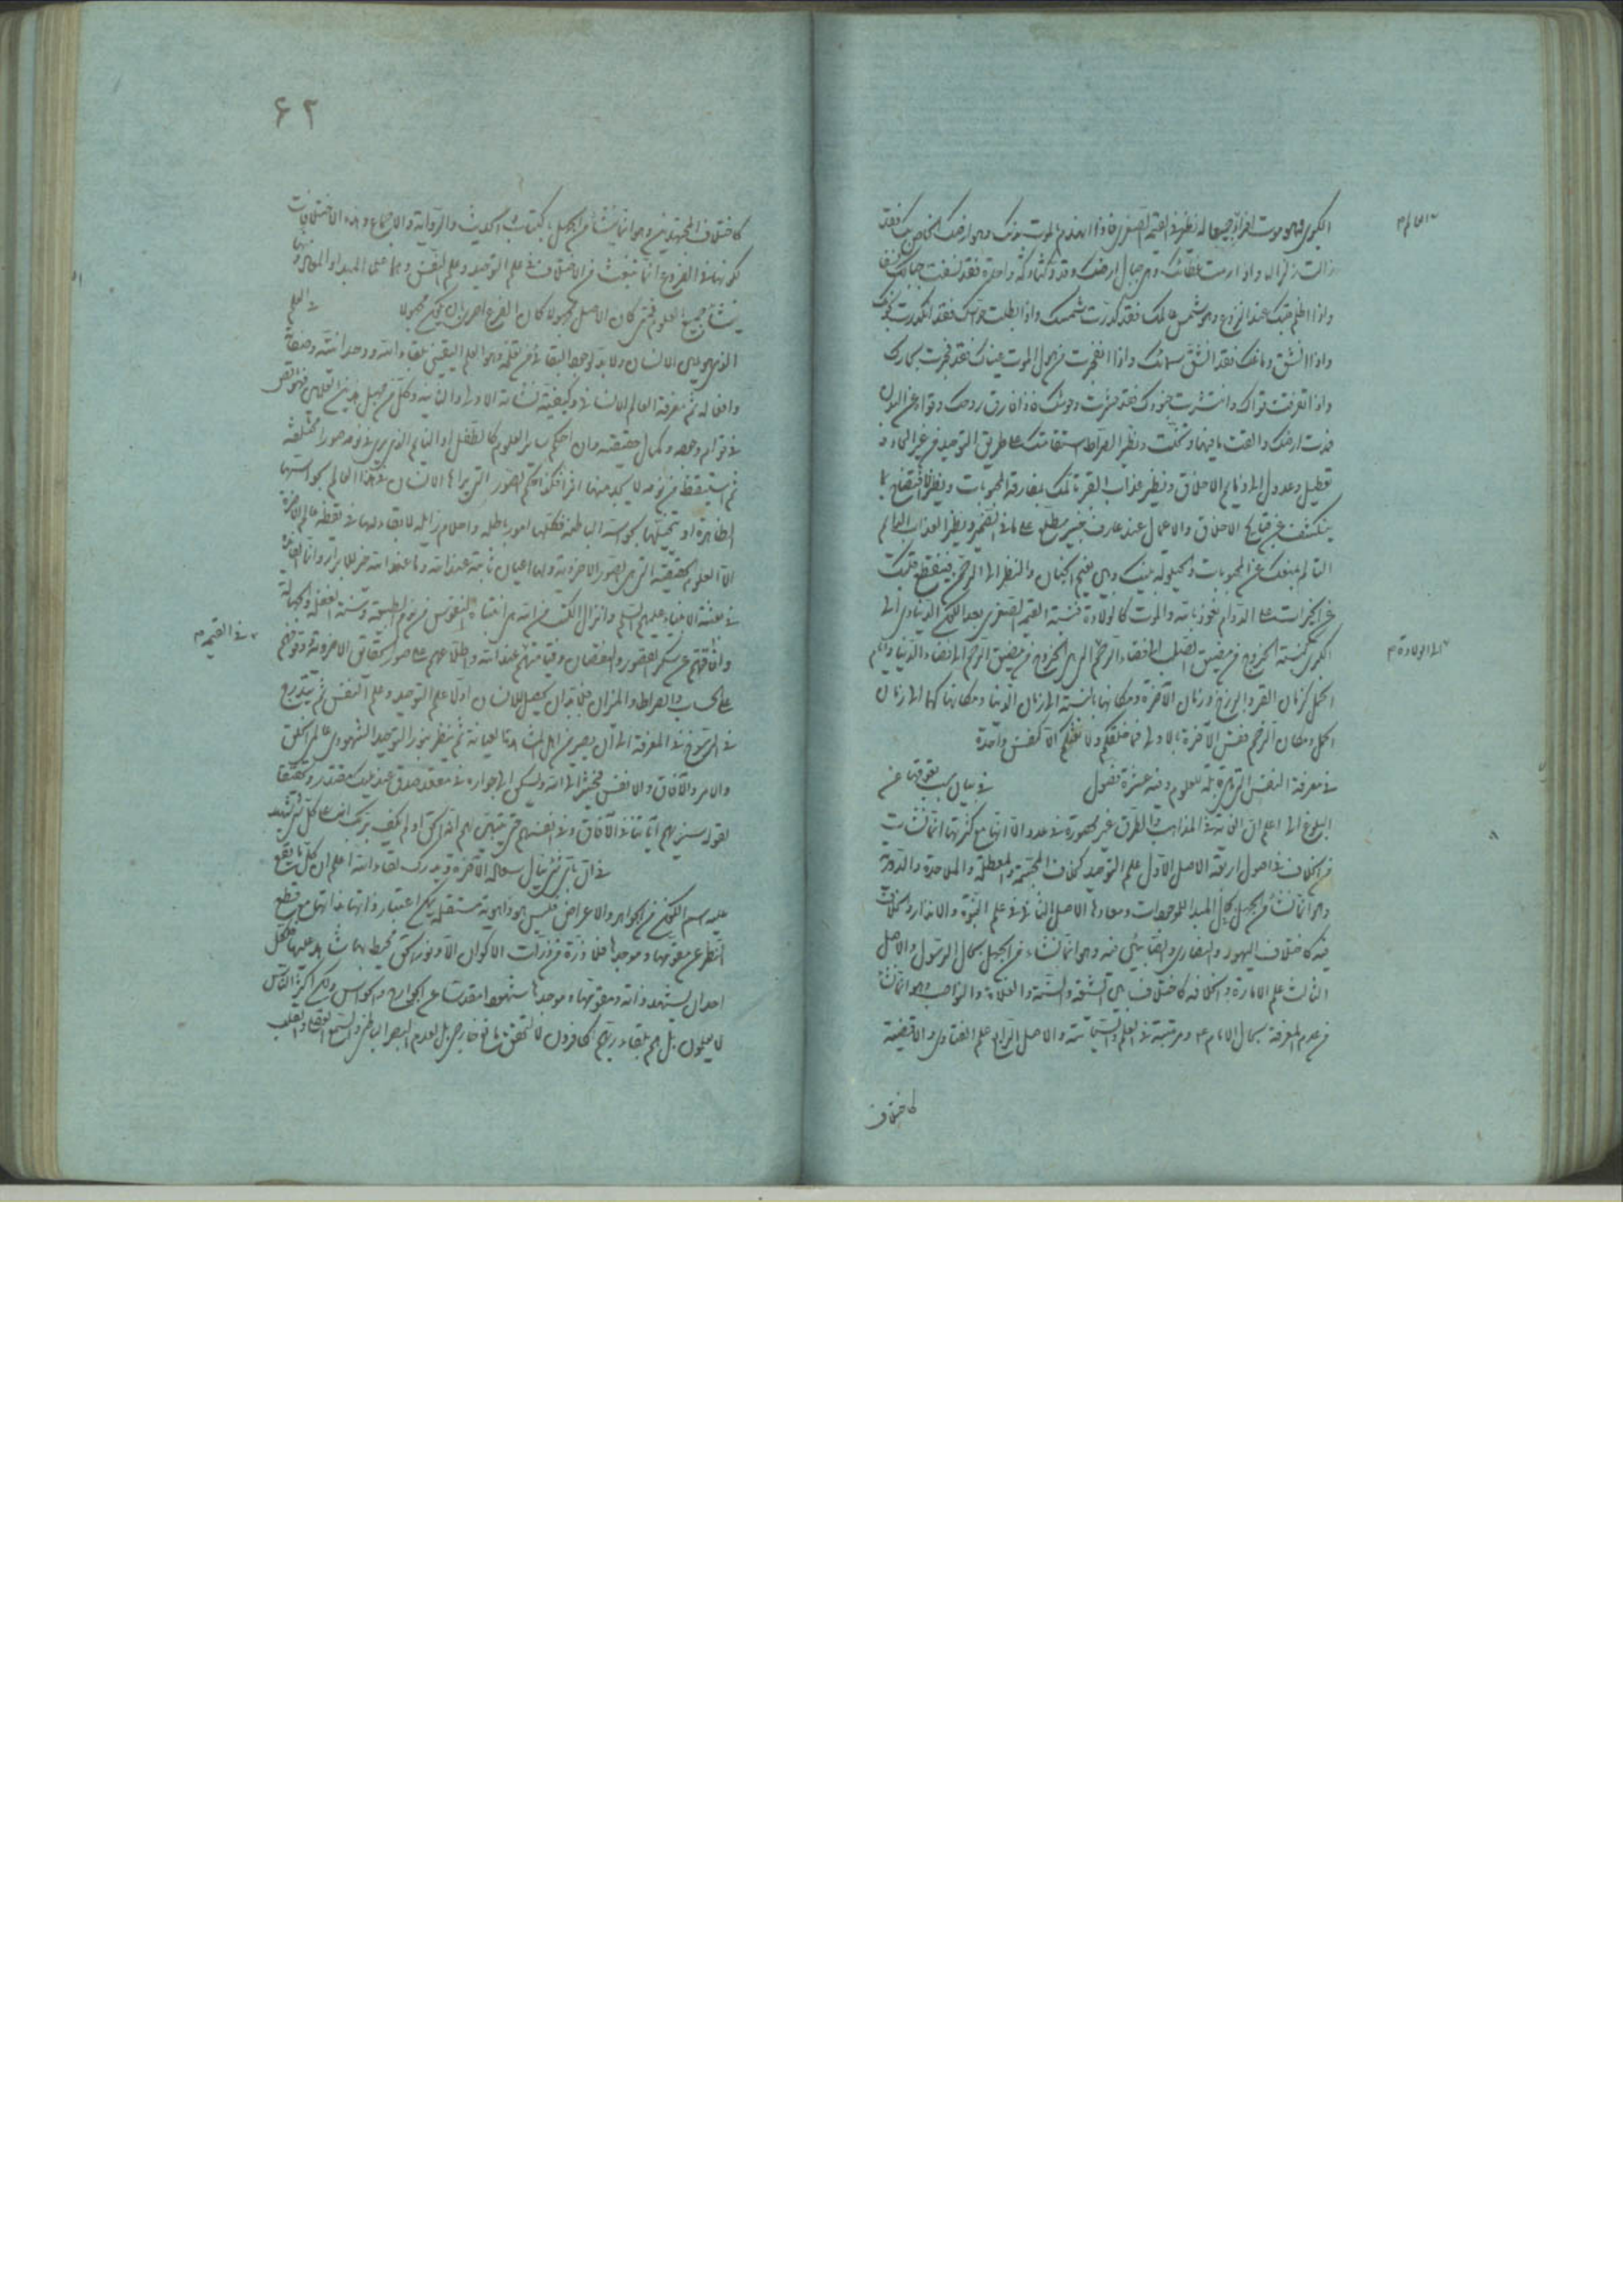 الكبرى فهو موت افراده جميعا له نظير في القيمة الصغرى فاذا انهدم بالموت بدنك وهو ارضك الخاص بك فقد
زالت زلزالها واذا رمت عظامك وهي جبال ارضك ودكتا دكة واحدة فقد نسفت جبالك نسفا
واذا اظلم قلبك عند النزع وهو شمس عالمك فقد كورت شمسك واذا بطلت حواسك فقد انكدرت نجومك
واذا انشق دماغك فقد انشق سمائك واذا انفجرت من هول الموت عيناك فقد فجرت بحارك
واذا تفرقت قواك وانتشرت جنودك فقد حشرت وحوشك فاذا فارق روحك وقواه عن البدن
مدت ارضك والقت ما فيها وتخلت ونظير الصراط استقامتك على طريق التوحيد من غير الحاد و
تعطيل وعدول الى ذمايم الاخلاق ونظير عذاب القبر تألمك بمفارقة المحبوبات ونظير الافتضاح ما
ينكشف من قبايح الاخلاق والاعمال عند عارف خبير مطلع على ما في الضمير ونظير العذاب الدائم
التألم بمنعك عن المحبوبات والحيلولة بينك وبين نعيم الجنان والنظر الى الرحمن فينقطع قلبك
عن الخيرات على الدوام نعوذ بالله والموت كالولادة فنسبة القيمة الصغرى بعد الكون الدنياوي الى
الكبرى كنسبة الخروج من مضيق الصلب الى فضاء الرحم الى الخروج من مضيق الرحم الى فضاء الدنيا وايام
الحمل كزمان القبر والبرزخ وزمان الآخرة ومكانها بالنسبة الى زمان الدنيا ومكانها كهما الى زمان
الحمل ومكان الرحم فقس الآخرة بالاولى فما خلقكم ولا بعثكم الا كنفس واحدة
في معرفة النفس القابلة للعلوم وفيه عشرة فصول في بيان سبب تعوقها عن
البلوغ الى اعلم ان اختلاف المذاهب والطرق غير محصورة في عدد الا انها مع كثرتها انما نشأت
من الخلاف في اصول اربعة الاصل الاول علم التوحيد كخلاف المجسمة والمعطلة والملاحدة والدهرية
وهو انما نشأ من الجهل بحال المبدا للموجودات ومعادها الاصل الثاني علم النبوة والانذار والخلاف
فيه كاختلاف اليهود والنصارى والصابئين فيه وهو انما نشأ من الجهل بحال الرسول والاصل
الثالث علم الامارة والخلافة كاختلاف بين الشيعة والسنة والغلاة والنواصب وهو انما نشأ
من عدم المعرفة بحال الامام ع ومرتبته في العلم والسياسة والاصل الرابع علم الفتاوى والاقضية
كاختلاف
العالم م
الى الولادة م
۶۲
كاختلاف المجتهدين وهو انما ينشأ من الجهل بالكتاب والحديث والرواية والاجماع وهذه الاختلافات
لكونها في الفروع انما تنبعث من الاختلاف في علم التوحيد وعلم النفس وهما علما المبدا والمعاد ومنهما
ينشأ جميع العلوم فمتى كان الاصل مجهولا كان الفرع احرى بان يكون مجهولا في العلم
الذي هو من الانسان ولا بد لوجه البقاء من قبله وهو العلم اليقيني بلقاء الله ووحدانيته وصفاته
وافعاله ثم معرفة العالم الانساني وكيفية نشأته الاولى والثانية وكل من جهل هذين العلمين فهو ناقص
في قوام وجوده وكمال حقيقته وان احكم ساير العلوم كالطفل او النايم الذي يرى في نومه صورا مختلفة
ثم استيقظ من نومه لا يجد منها اثرا فكذا حكم الصور التي يراها الانسان في هذا العالم بحواسه
الظاهرة او تخيلها بحواسه الباطنة فكلها امور باطلة واحلام زايلة لا بقاء لها في يقظة عالم الآخرة
الا العلوم الحقيقية التي هي الصور الاخروية ولها اعيان ثابتة عند الله وما عند الله خير للابرار وانما الفائدة
في بعثة الانبياء عليهم السلم وانزال الكتب من الله هي انتباه النفوس من نوم الطبيعة وسنة الغفلة والجهالة
وافاقتهم عن سكر القصور والنقصان وقيامهم عند الله واطلاعهم على صور الحقايق الاخروية ووقوفهم
على الحساب والصراط والميزان فلا بد ان يحصل للانسان اولا علم التوحيد وعلم النفس ثم يتدرج
في الرسوخ في المعرفة الى ان يصير من اهل المشاهدة العيانية ثم ينظر بنور التوحيد الشهودي عالم الخلق
والامر والآفاق والانفس فيحشر الى الله ويسكن الى جواره في مقعد صدق عند مليك مقتدر وتحققا
لقوله سنريهم آياتنا في الآفاق وفي انفسهم حتى يتبين لهم انه الحق اولم يكف بربك انه على كل شيء شهيد
في ان باي شيء ينال سعادة الآخرة ويدرك لقاء الله اعلم ان كل ما يقع
عليه اسم الكون من الجواهر والاعراض فليس هو ذا هوية مستقلة يمكن اعتبار ذاتها بذاتها مع قطع
النظر عن مقومها وموجدها فلا ذرة من ذرات الاكوان الا ونور الحق محيط بها شاهد عليها فلكل
احد ان يشهد ذاته ومقومها وموجدها شهودا مقدسا عن الجوارح والحواس ولكن اكثر الناس
لا يعلمون بل هم بلقاء ربهم كافرون لا لتحقق مانع خارجي بل لعدم البصر الباطني والسمع العقلي والقلب
في القيمة م